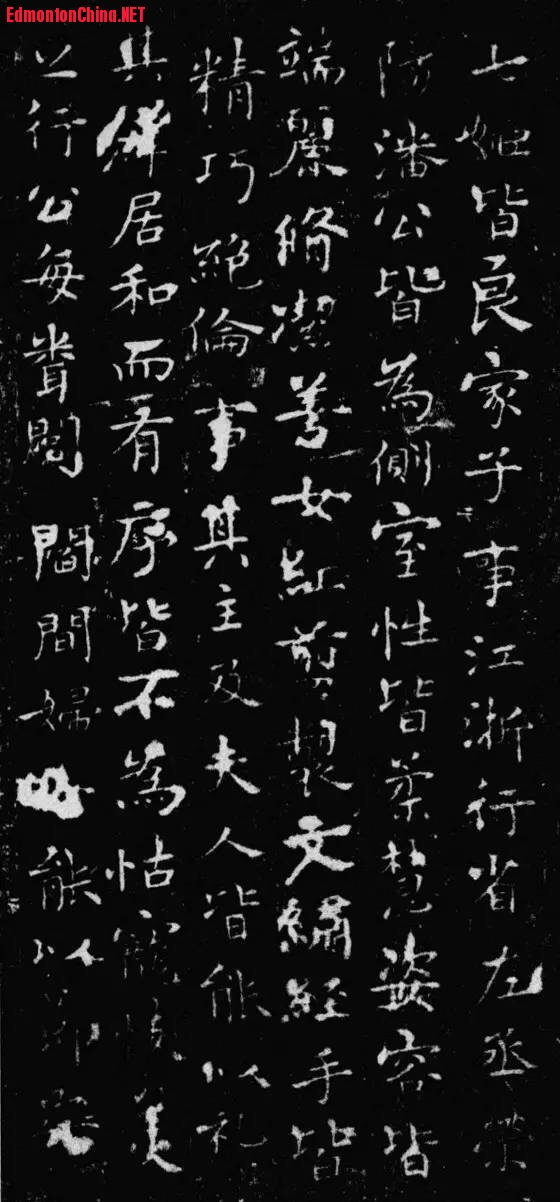 EdmontonChina.NET
七姬皆良家子事江浙行省左丞榮
潘公皆為側室性皆柔慧姿容皆
端麗脩潔善女紅剪製文繡經手皆
精巧絕倫事其主及夫人皆能以礼
其群居和而有序皆不為怙寵忮美
之行公每閻間婦能以節